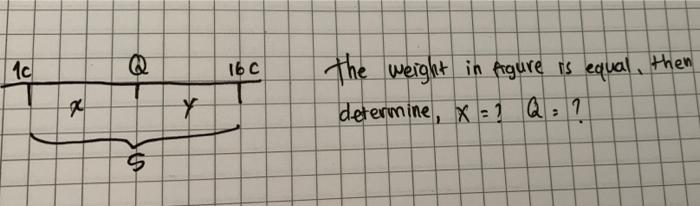 1C Q 16 C
x y
5
The weight in figure is equal, then
determine, x = ? Q = ?